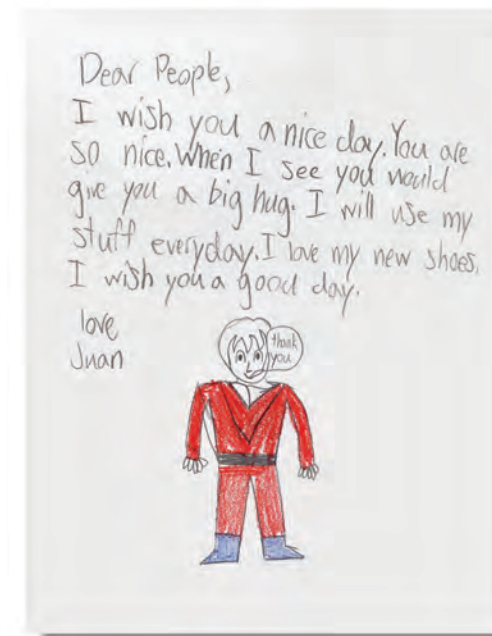 Dear People,
I wish you a nice day. You are
so nice. When I see you would
give you a big hug. I will use my
stuff everyday. I love my new shoes.
I wish you a good day.
love
Juan
thank
you